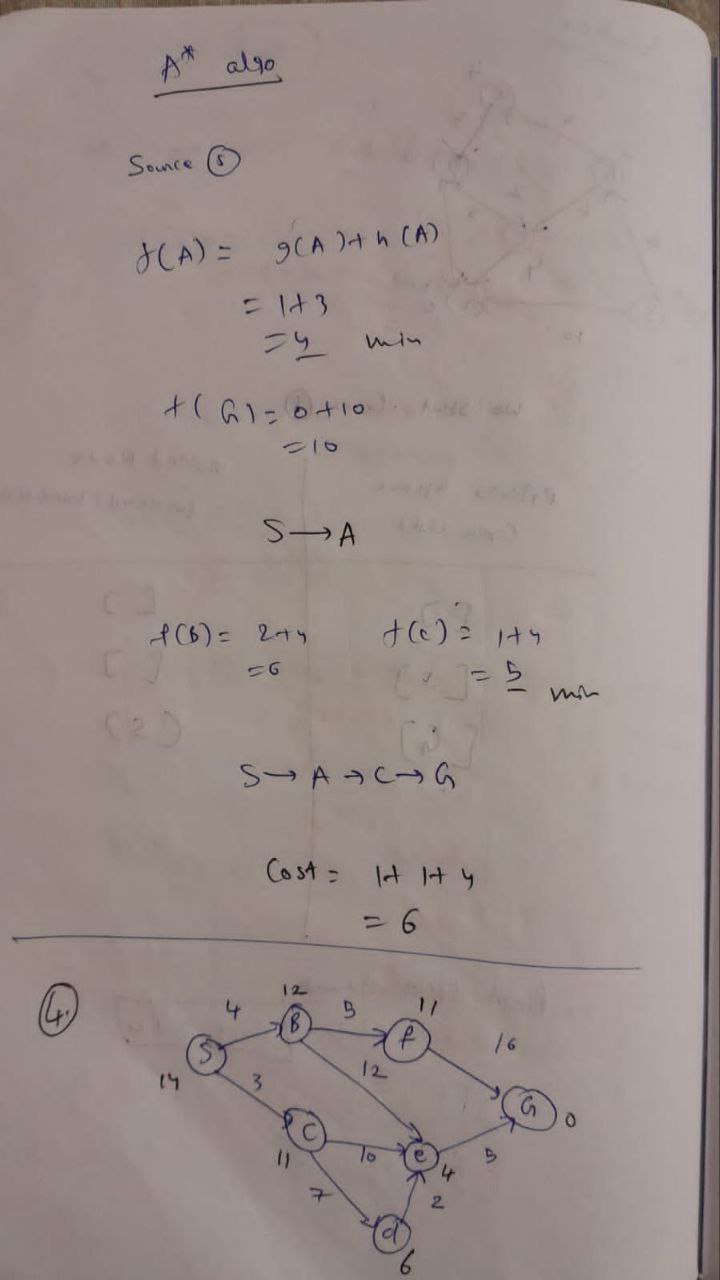 A* algo
Source (S)
f(A) = g(A)+h(A)
= 1+3
= 4 min
f(G) = 0+10
= 10
S → A
f(B) = 2+4 f(C) = 1+4
= 6 = 5 min
S → A → C → G
Cost = 1+1+4
= 6
4.
12
4 B 5 11
S f 16
14 3 12 G 0
C
11 10 e 4 5
7 2
d
6